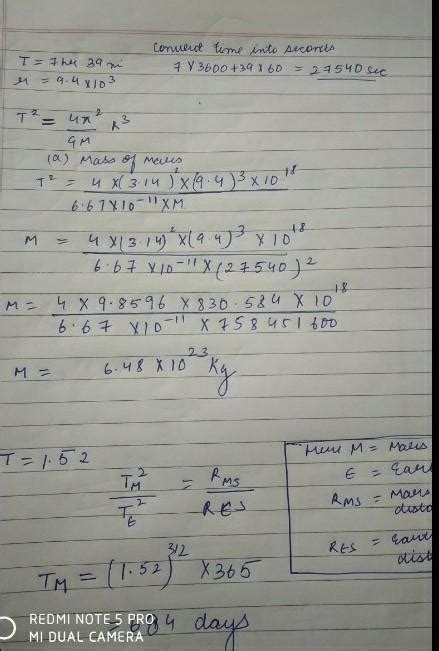 Convert time into seconds
T = 7hr 39 mi
7 × 3600 + 39 × 60 = 27540 sec
r = 9.4 × 10³
T² = 4π² / GM r³
(a) Mass of mars
T² = 4 × (3.14)² × (9.4)³ × 10¹⁸ / 6.67 × 10⁻¹¹ × M
M = 4 × (3.14)² × (9.4)³ × 10¹⁸ / 6.67 × 10⁻¹¹ × (27540)²
M = 4 × 9.8596 × 830.584 × 10¹⁸ / 6.67 × 10⁻¹¹ × 758451600
M = 6.48 × 10²³ Kg
T = 1.52
T_M² / T_E² = R_MS / R_ES
Here M = Mars
E = Eart
R_MS = Mars
dista
R_ES = Eart
dist
T_M = (1.52)^3/2 × 365
= 684 days
REDMI NOTE 5 PRO
MI DUAL CAMERA